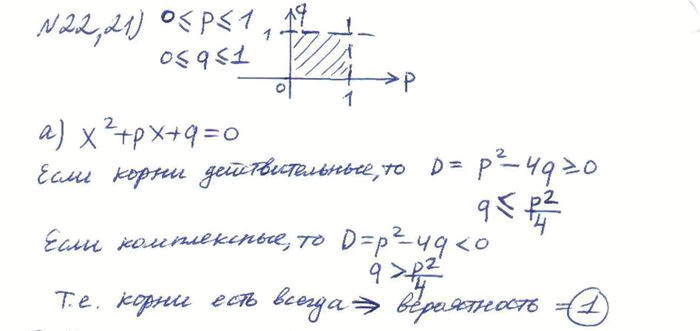 N22,21) 0≤p≤1
0≤q≤1
q
1
0
1
p
а) x²+px+q=0
Если корни действительные, то D= p²-4q≥0
q ≤ p²/4
Если комплексные, то D=p²-4q<0
q > p²/4
Т.е. корни есть всегда ⇒ вероятность = 1